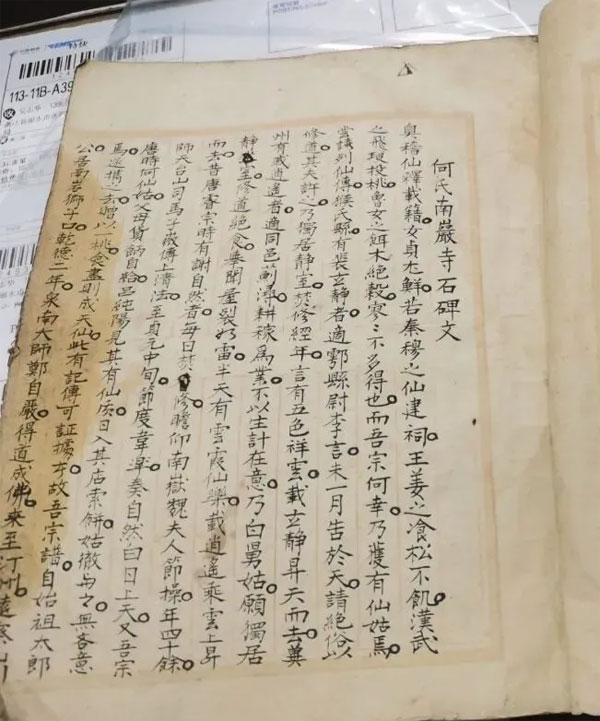 何氏南嚴寺石碑文
奥稽仙釋載籍女貞尤鮮若秦穆之仙建祠王姜之飡松不飢漢武
之飛琁投桃魯女之餌木絕穀寥〻不多得也而吾宗何幸乃獲有仙姑焉
雲議列仙傳猴氏縣有裴玄靜者適鄠縣尉李言未一月告於天請絕俗以
修道其夫許之乃獨居靜室焚修經年言有五色祥雲載玄靜昇天而去冀
州有戚逍遥者適同邑蒯潯耕稼為業不以生計在意乃白舅姑願獨居
靜室修道絕食忽聞屋裂如雷半天有雲霞仙樂載逍遙乘雲上昇
而去昔唐睿宗時有謝自然者每日焚修瞻仰南嶽魏夫人節操年四十餘
師天台山司馬子薇傳上清法至貞元中旬節度韋皋奏自然白日上天又吾宗
唐時何仙姑父母貨餅自給呂純陽見其有仙质日入其店索餅姑徹毋々無吝意
馬遂携之去贈以一桃食盡則成天仙此有記傳可証據本故吾宗譜自始祖太郎
公居南岩獅子口乾德二年泉南大師鄭自嚴得道成佛來至汀州
113-11B-A39
特快